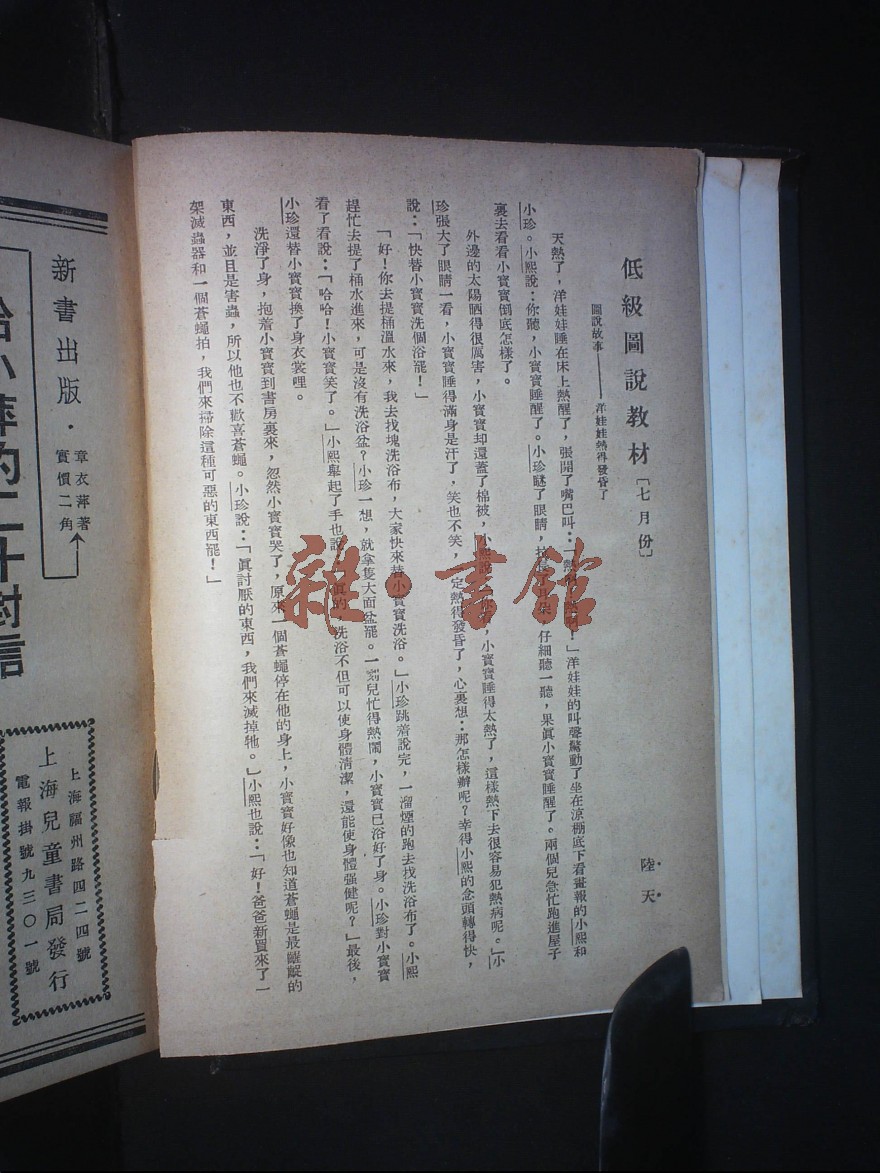 低級圖說教材〔七月份〕
陸天
圖說故事——洋娃娃熱得發昏了
天熱了，洋娃娃睡在床上熱醒了，張開了嘴巴叫：「熱 ！」洋娃娃的叫聲驚動了坐在涼棚底下看畫報的小熙和
小珍。小熙說：你聽，小寶寶睡醒了。小珍瞇了眼睛， 仔細聽一聽，果眞小寶寶睡醒了。兩個兒急忙跑進屋子
裏去看看小寶寶倒底怎樣了。
外邊的太陽晒得很厲害，小寶寶却還蓋了棉被，小熙說 ，小寶寶睡得太熱了，這樣熱下去很容易犯熱病呢。」小
珍張大了眼睛一看，小寶寶睡得滿身是汗了，笑也不笑， 定熱得發昏了，心裏想：那怎樣辦呢？幸得小熙的念頭轉得快，
說：「快替小寶寶洗個浴罷！」
「好！你去提桶溫水來，我去找塊洗浴布，大家快來替小寶寶洗浴。」小珍跳着說完，一溜煙的跑去找洗浴布了。小熙
趕忙去提了桶水進來，可是沒有洗浴盆？小珍一想，就拿隻大面盆罷。一刻兒忙得熱鬧，小寶寶已浴好了身。小珍對小寶寶
看了看說：「哈哈！小寶寶笑了。」小熙舉起了手也說： 眞的 洗浴不但可以使身體淸潔，還能使身體强健呢？」最後，
小珍還替小寶寶換了身衣裳哩。
洗淨了身，抱着小寶寶到書房裏來，忽然小寶寶哭了，原來一個蒼蠅停在他的身上，小寶寶好像也知道蒼蠅是最齷齪的
東西，並且是害蟲，所以他也不歡喜蒼蠅。小珍說：「眞討厭的東西，我們來滅掉牠。」小熙也說：「好！爸爸新買來了一
架滅蟲器和一個蒼蠅拍，我們來掃除這種可惡的東西罷！」
雜·書館
新書出版·
章衣萍著
實價二角
給小萍的二十封信
上海福州路四二四號
上海兒童書局發行
電報掛號九三〇一號